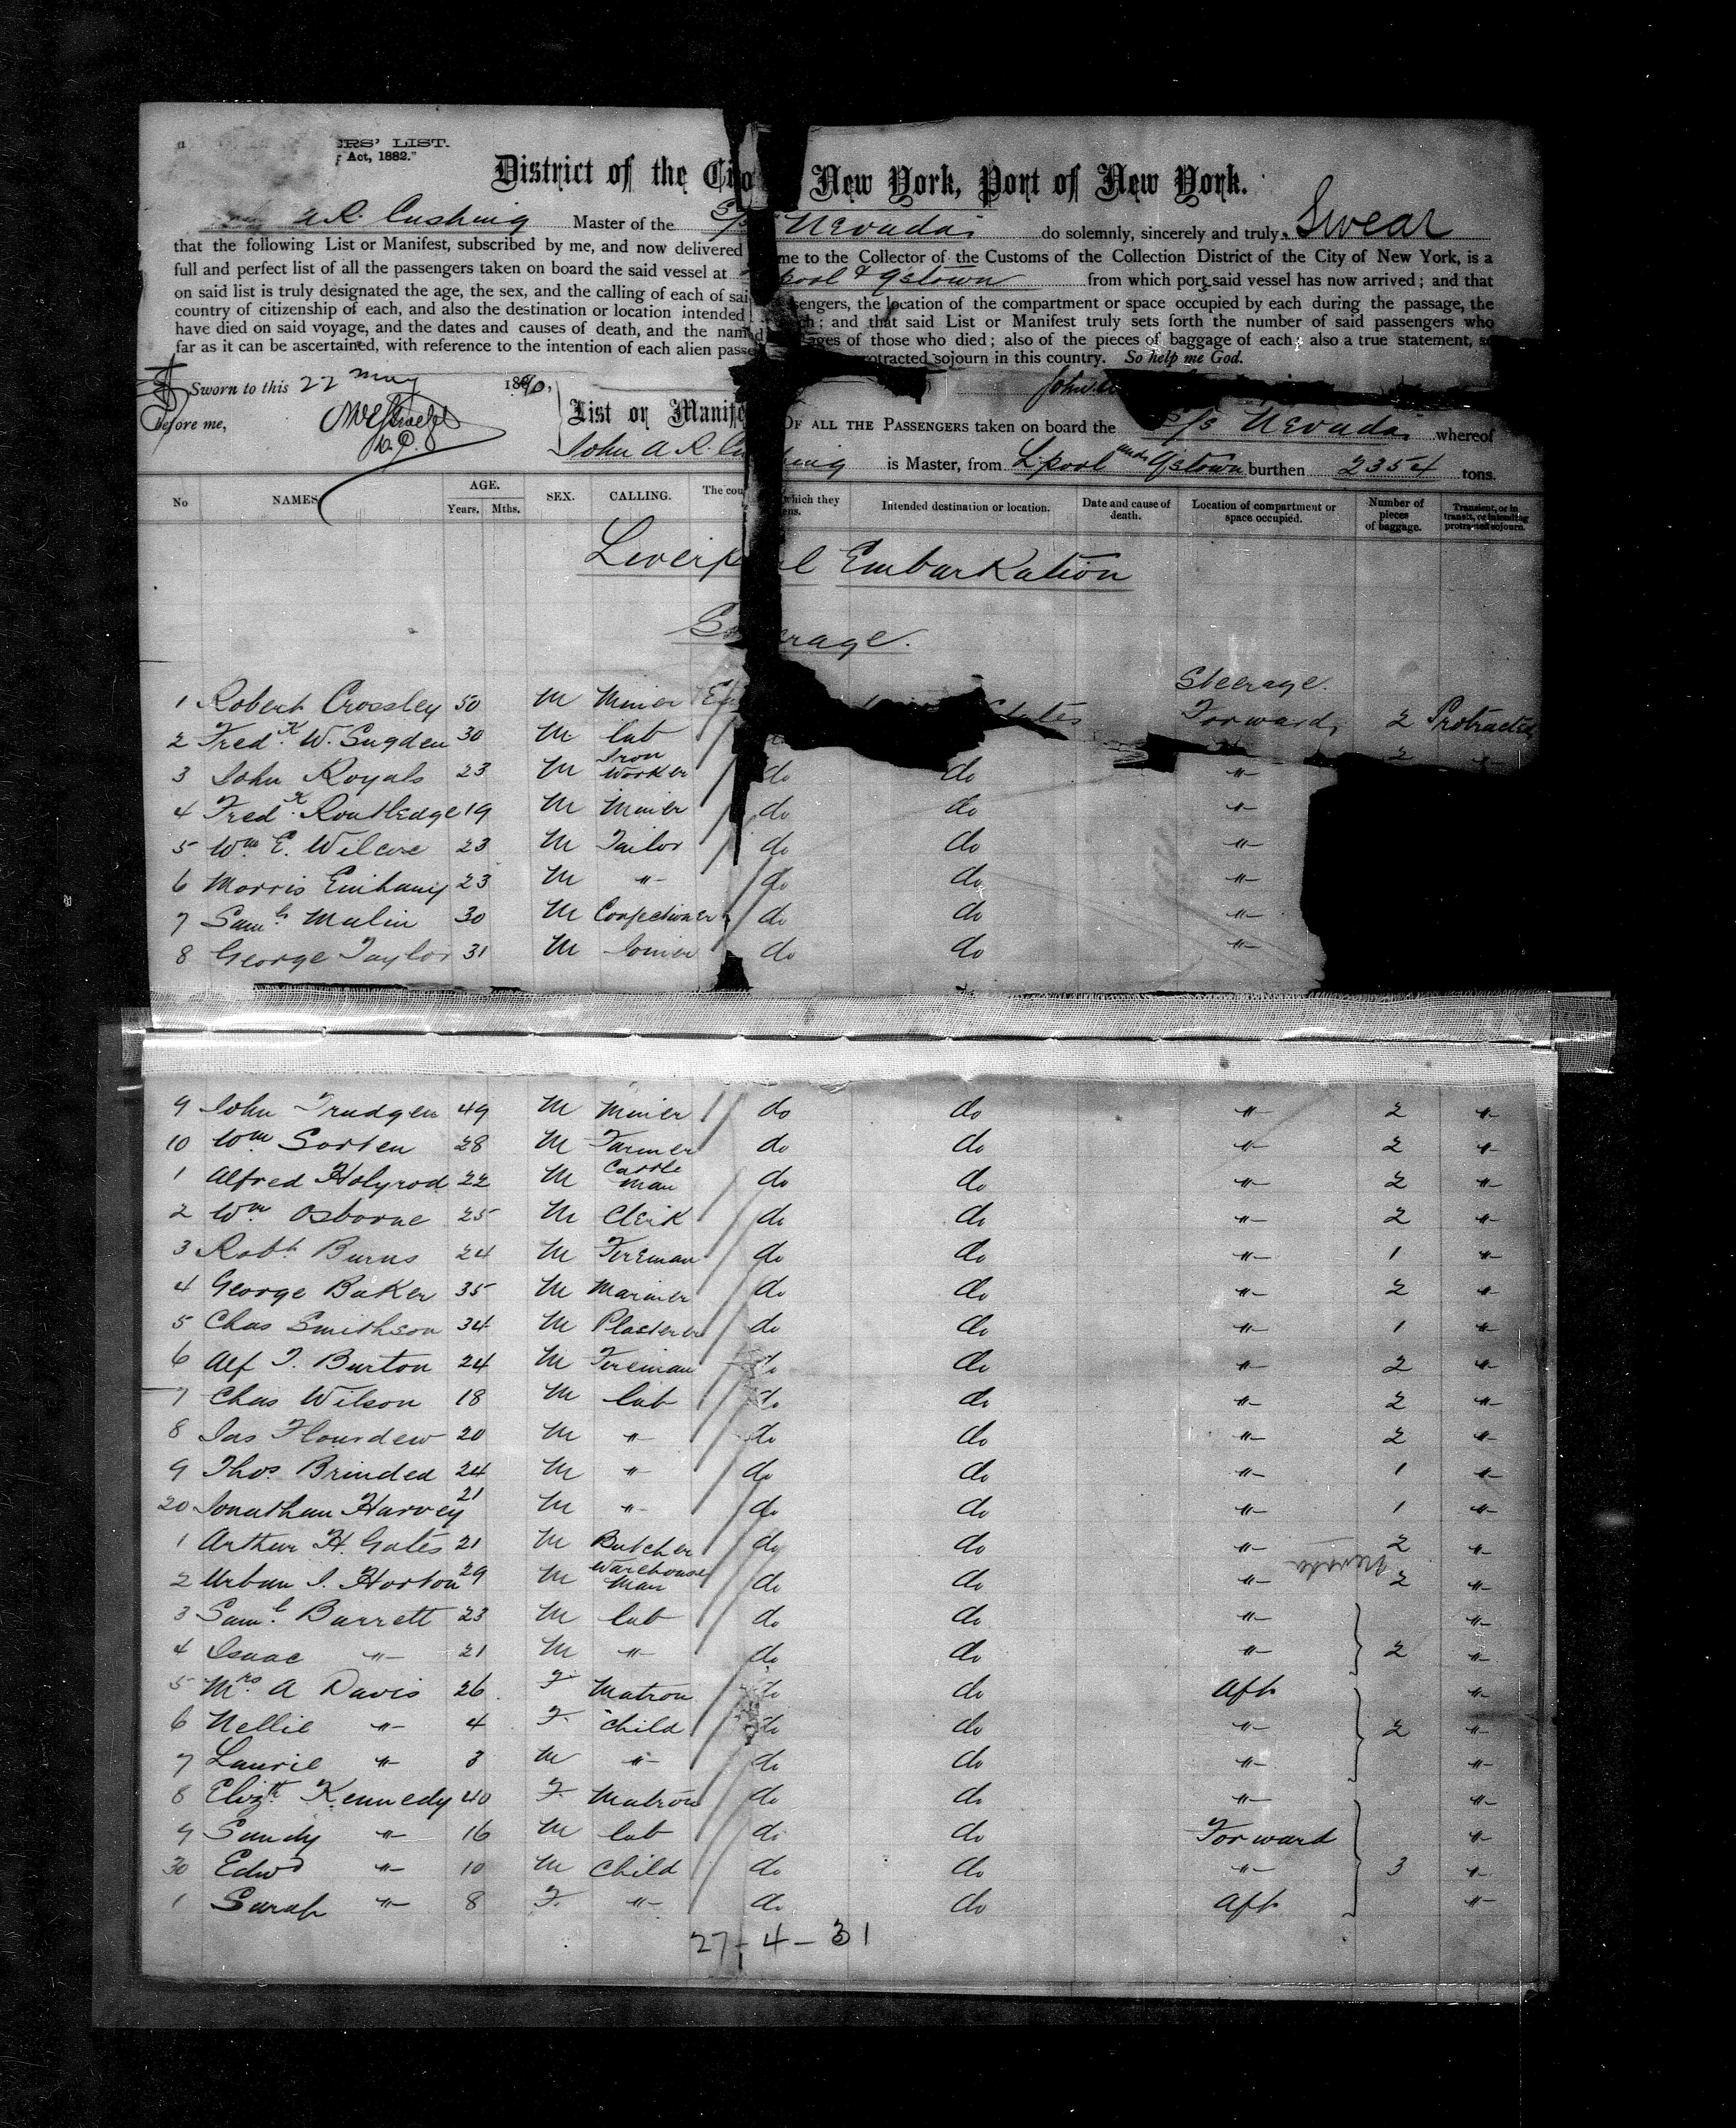 ERS' LIST.
Act, 1882."
District of the City New York, Port of New York.
A R. Cushing Master of the S/S Nevada do solemnly, sincerely and truly Swear
that the following List or Manifest, subscribed by me, and now delivered me to the Collector of the Customs of the Collection District of the City of New York, is a
full and perfect list of all the passengers taken on board the said vessel at pool & Qstown from which port said vessel has now arrived; and that
on said list is truly designated the age, the sex, and the calling of each of sai sengers, the location of the compartment or space occupied by each during the passage, the
country of citizenship of each, and also the destination or location intended ch; and that said List or Manifest truly sets forth the number of said passengers who
have died on said voyage, and the dates and causes of death, and the nam ages of those who died; also of the pieces of baggage of each; also a true statement, so
far as it can be ascertained, with reference to the intention of each alien passe rotracted sojourn in this country. So help me God.
Sworn to this 22 May 1890,
before me,
John A
List or Manife OF ALL THE PASSENGERS taken on board the S/S Nevada whereof
John A R. Cushing is Master, from L'pool and Qstown burthen 2354 tons.
No NAMES AGE. Years, Mths. SEX. CALLING. The cou which they ens. Intended destination or location. Date and cause of death. Location of compartment or space occupied. Number of pieces of baggage. Transient, or in transit, or intending protracted sojourn.
Liverpool Embarkation
Steerage.
Steerage.
1 Robert Crossley 50 M Miner Eng States Forward 2 Protracted
2 Fredk. W. Sugden 30 M lab " 2 "
3 John Royals 23 M Iron Worker do do "
4 Fredk. Routledge 19 M Miner do do "
5 Wm E. Wilcox 23 M Tailor do do "
6 Morris 23 M " do do "
7 Saml. Malin 30 M Confectioner do do "
8 George Taylor 31 M Joiner do do "
9 John Trudgen 49 M Miner do do " 2 "
10 Wm Sorten 28 M Farmer do do " 2 "
1 Alfred Holyrod 22 M Cattle man do do " 2 "
2 Wm Osborne 25 M Clerk do do " 2 "
3 Robt. Burns 24 M Fireman do do " 1 "
4 George Baker 35 M Mariner do do " 2 "
5 Chas Smithson 34 M Plasterer do do " 1 "
6 Alf T. Burton 24 M Fireman do do " 2 "
7 Chas Wilson 18 M lab do do " 2 "
8 Jas Flourdew 20 M " do do " 2 "
9 Thos. Brinded 24 M " do do " 1 "
20 Jonathan Harvey 21 M " do do " 1 "
1 Arthur H. Gates 21 M Butcher do do " 2 "
Nevada
2 Urban J. Horton 29 M Warehouse Man do do " 2 "
3 Saml. Barrett 23 M lab do do " "
4 Isaac " 21 M " do do " 2 "
5 Mrs. A Davis 26 F Matron do do Aft "
6 Nellie " 4 F. child do do " 2 "
7 Laurie " 3 M " do do " "
8 Elizth Kennedy 40 F. Matron do do " "
9 Sandy " 16 M lab do do Forward "
30 Edwd " 10 M child do do " 3 "
1 Sarah " 8 F. " do do Aft "
27-4-31